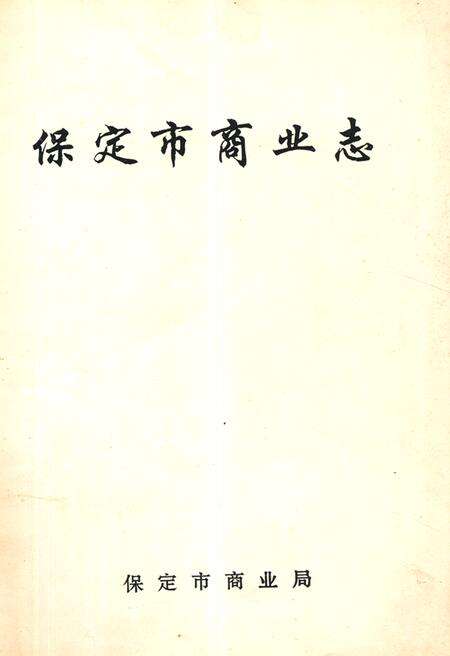 保定市商业志
保定市商业局